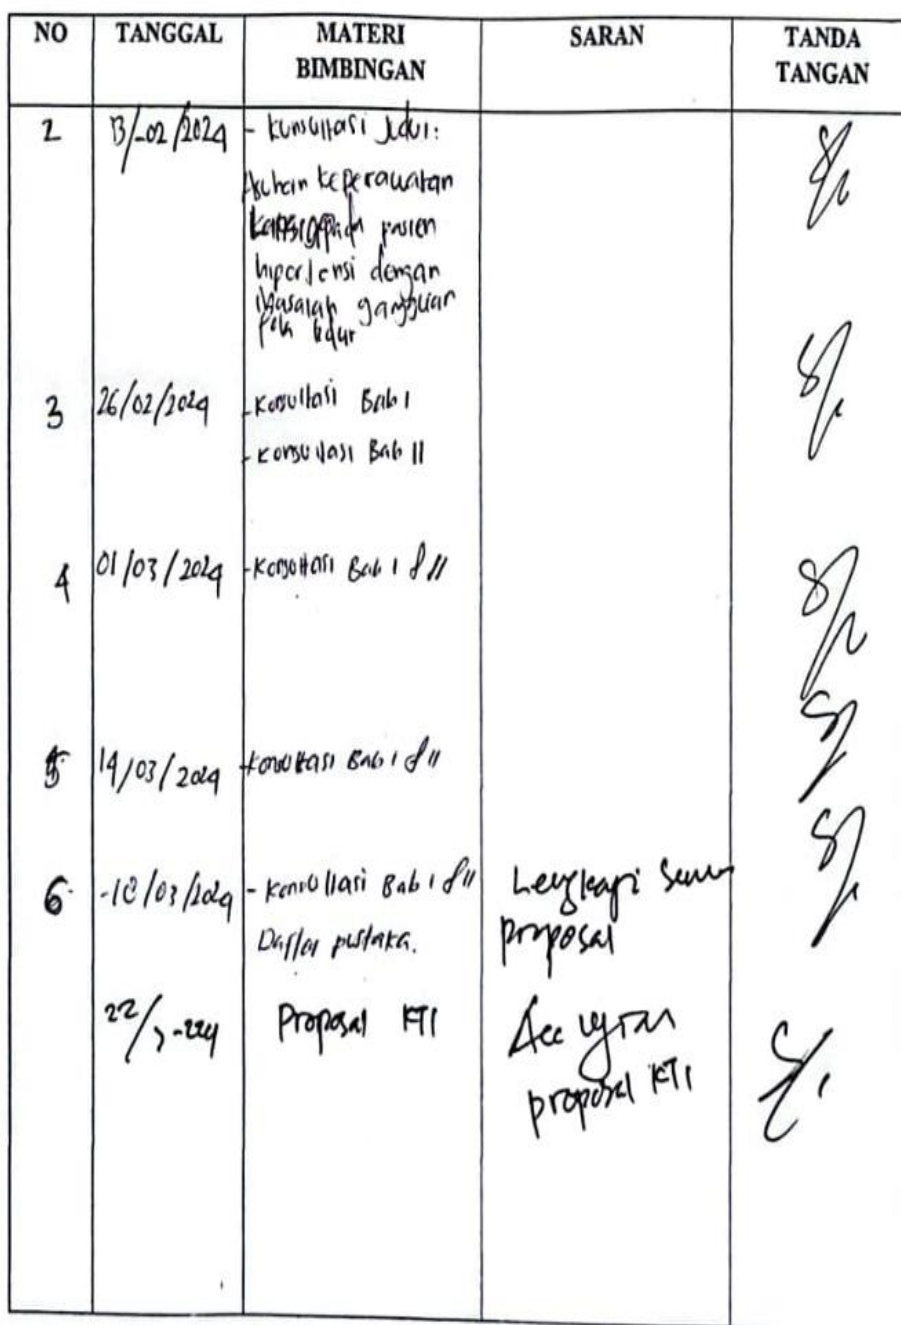 NO TANGGAL MATERI BIMBINGAN SARAN TANDA TANGAN
2 13/-02/2024 - Kunsultasi Judul:
Asuhan keperawatan
pada pasien
hipertensi dengan
Masalah gangguan
Pola tidur
3 26/02/2024 - Konsultasi Bab I
- Konsultasi Bab II
4 01/03/2024 - Konsultasi Bab I & II
5 14/03/2024 Konsultasi Bab I & II
6 /03/2024 - Konsultasi Bab I & II Lengkapi
Daftar pustaka. proposal
22/ Proposal KTI Acc ujian
proposal KTI